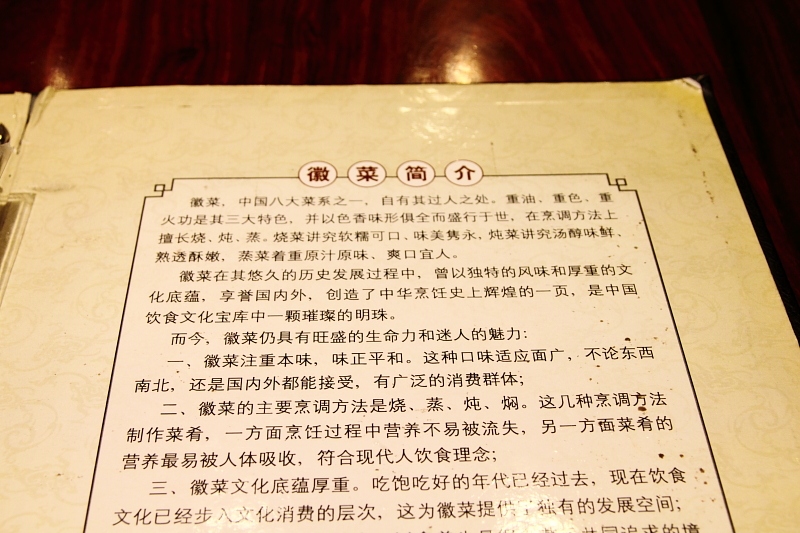 徽菜简介
徽菜，中国八大菜系之一，自有其过人之处。重油、重色、重
火功是其三大特色，并以色香味形俱全而盛行于世，在烹调方法上
擅长烧、炖、蒸。烧菜讲究软糯可口、味美隽永，炖菜讲究汤醇味鲜、
熟透酥嫩，蒸菜着重原汁原味、爽口宜人。
徽菜在其悠久的历史发展过程中，曾以独特的风味和厚重的文
化底蕴，享誉国内外，创造了中华烹饪史上辉煌的一页，是中国
饮食文化宝库中一颗璀璨的明珠。
而今，徽菜仍具有旺盛的生命力和迷人的魅力：
一、徽菜注重本味，味正平和。这种口味适应面广，不论东西
南北，还是国内外都能接受，有广泛的消费群体；
二、徽菜的主要烹调方法是烧、蒸、炖、焖。这几种烹调方法
制作菜肴，一方面烹饪过程中营养不易被流失，另一方面菜肴的
营养最易被人体吸收，符合现代人饮食理念；
三、徽菜文化底蕴厚重。吃饱吃好的年代已经过去，现在饮食
文化已经步入文化消费的层次，这为徽菜提供了独有的发展空间；
共同追求的境